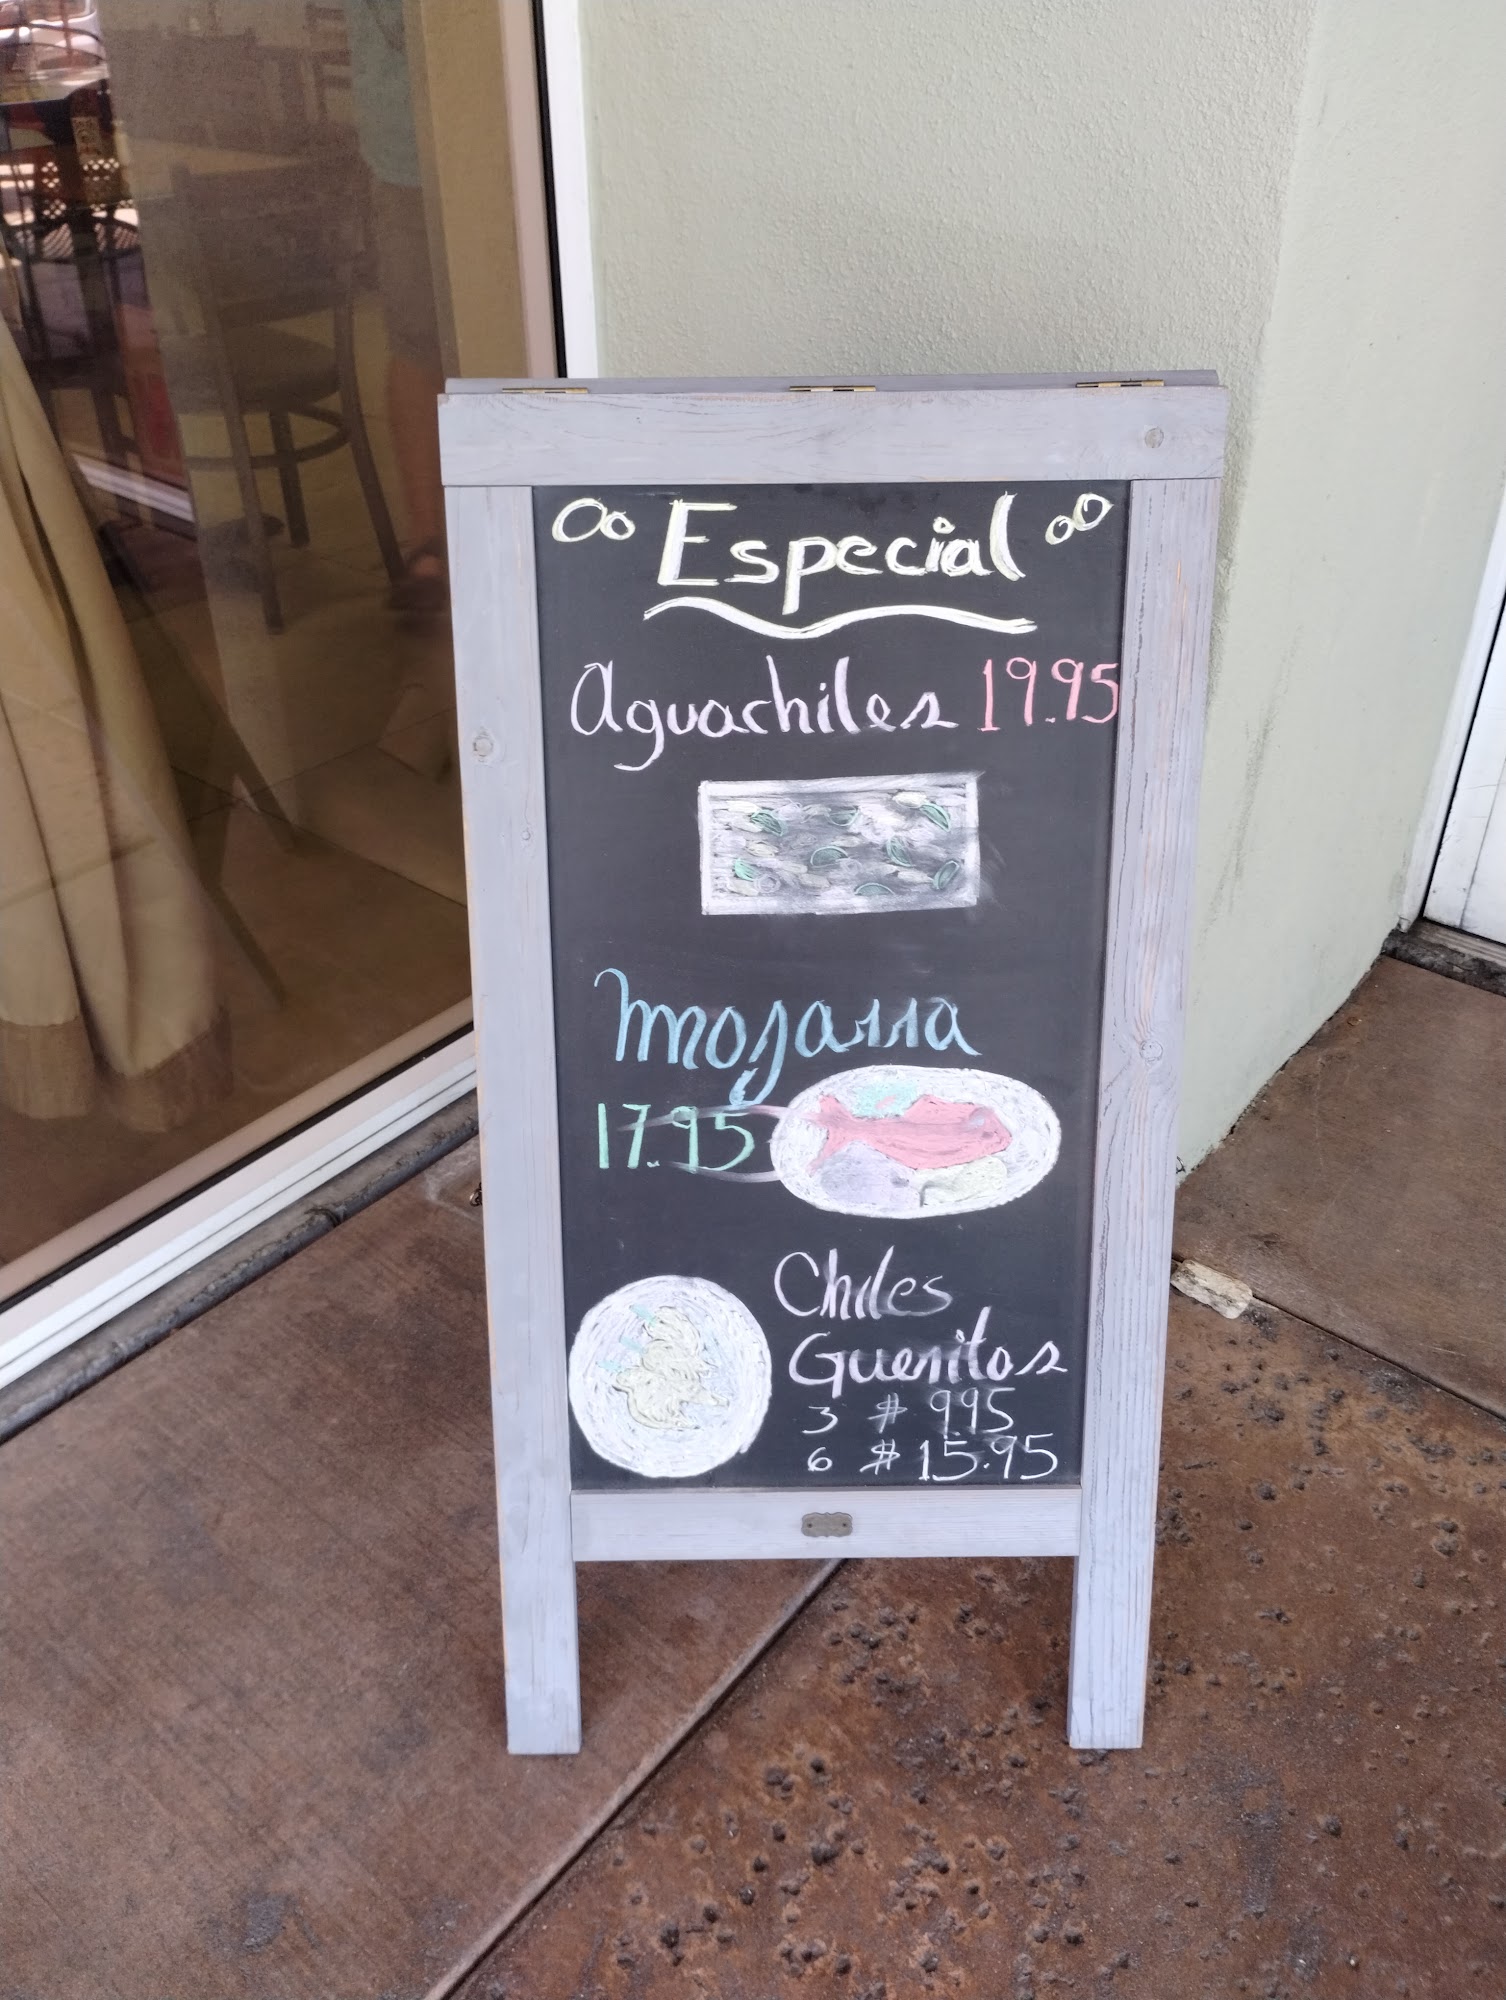 Especial
Aguachiles 19.95
Mojarra
17.95
Chiles
Gueritos
3 $ 9.95
6 $ 15.95